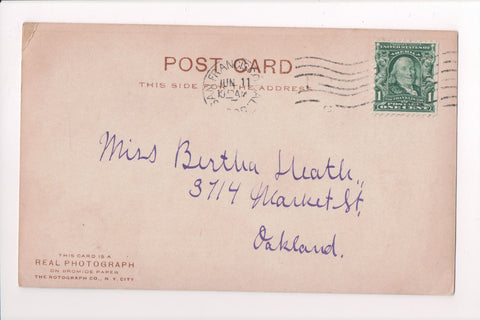 POST CARD
THIS SIDE THE ADDRESS
SAN FRANCISCO CAL.
JUN 11
UNITED STATES OF AMERICA
1 1
POSTAGE
ONE CENT
Miss Bertha Heath,
3714 Market St,
Oakland.
THIS CARD IS A
REAL PHOTOGRAPH
ON BROMIDE PAPER
THE ROTOGRAPH CO., N. Y. CITY